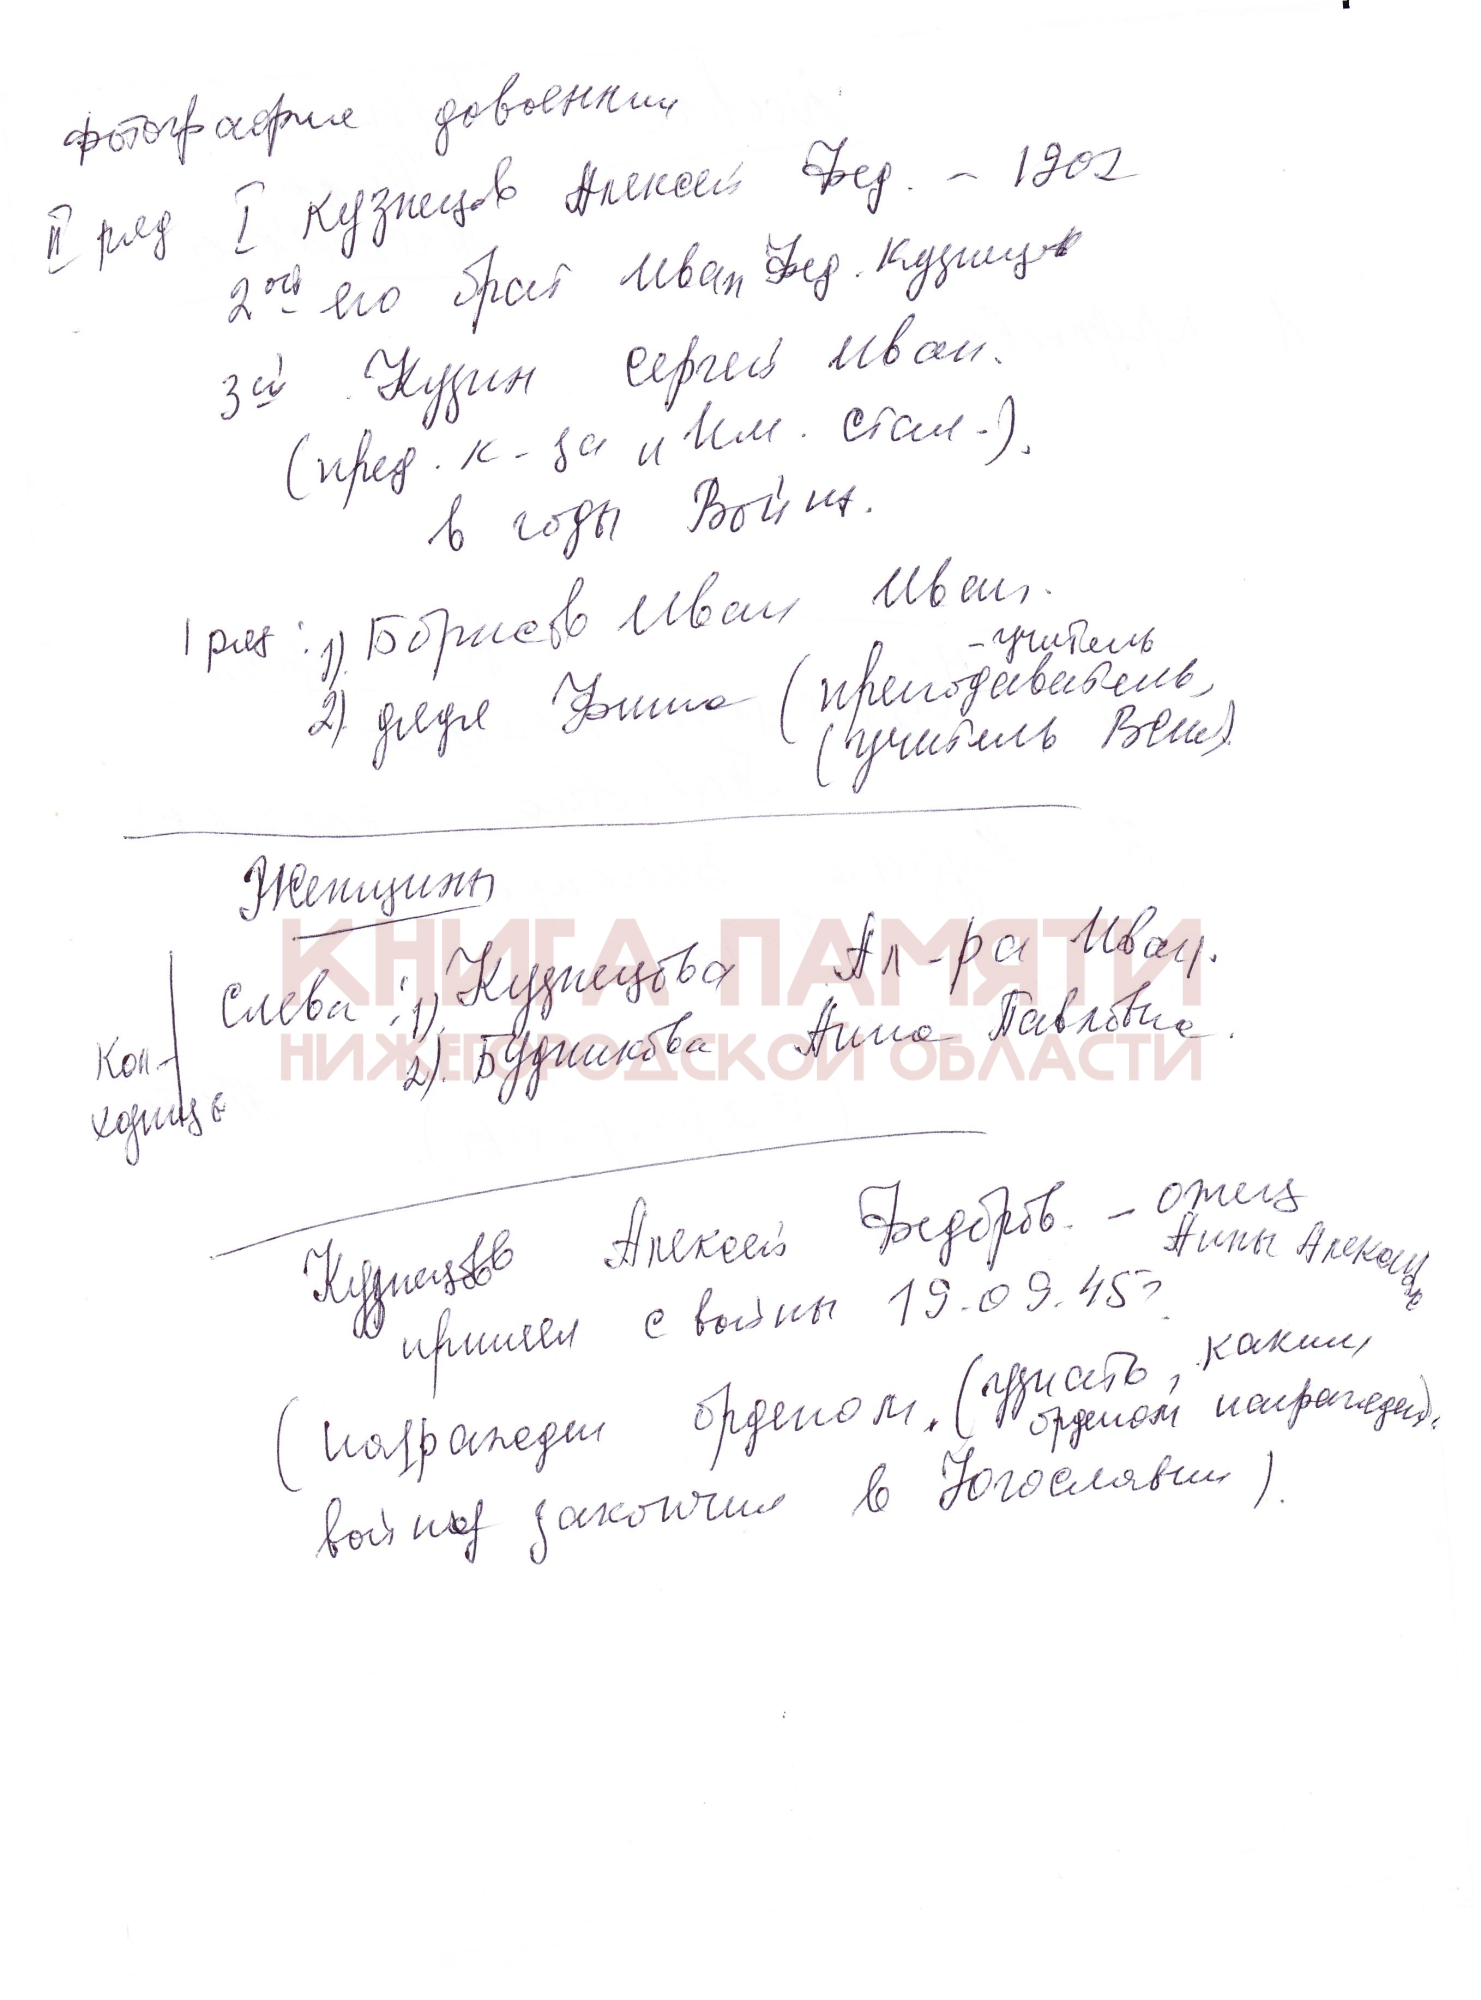 фотография довоенная
II ряд I Кузнецов Алексей Фед. - 1902
2ой его брат Иван Фед. Кузнецов
3й Кузин Сергей Иван.
(пред. к-за и Им. Стал-).
в годы Войны.
I ряд: 1). Борисов Иван Иван.
- учитель
2). дядя Фима (преподаватель,
(учитель Вени)
Женщины
КНИГА ПАМЯТИ
Слева: 1). Кузнецова Ал-ра Иван.
НИЖЕГОРОДСКОЙ ОБЛАСТИ
2). Будникова Анна Павловна.
Кол-
хозницы
Кузнецов Алексей Федоров. - отец
Анны Алексеевны
пришел с войны 19.09.45г.
(награжден орденом. (узнать, каким
орденом награжден).
войну закончил в Югославии).